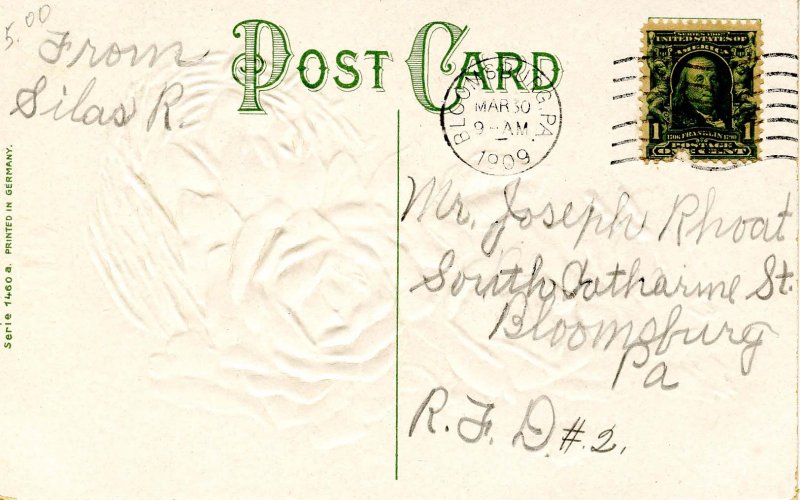 5.00
From
Silas R.
POST CARD
BLOOMSBURG, PA.
MAR 30
9-AM
1909
SERIES 1902
UNITED STATES OF
AMERICA
1 1
1706 FRANKLIN 1790
POSTAGE
ONE CENT
Mr. Joseph Rhoat
South Catharine St.
Bloomsburg
Pa
R. F. D. #. 2.
Serie 1460 a. PRINTED IN GERMANY.